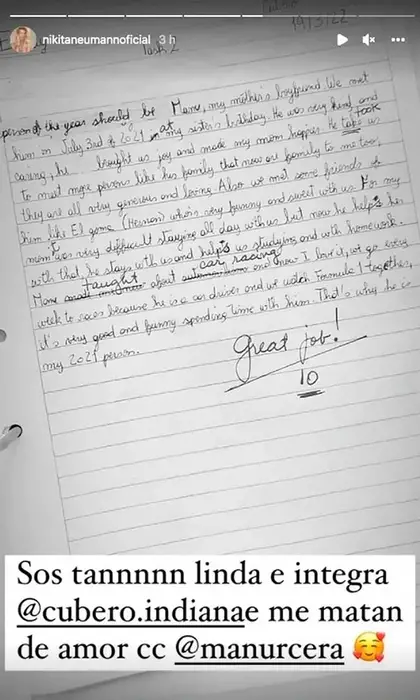 nikitaneumannoficial 3 h
19/3/22
Task 2
person of the year should be Manu, my mother's boyfriend. We met
him in July 3rd of 2021 in at my sister's birthday. He was very kind and
caring, he brought us joy and made my mom happier. He take took us
to meet more persons like his family that now are family to me too,
they are all very generous and loving. Also we met some friends of
him like El gome (Hernan) who's very funny and sweet with us. For my
mom it was very difficult staying all day with us but now he helps her
with that, he stays with us and helps us studying and with homework.
Manu taught about car racing and now I love it, we go every
week to races because he is a car driver and we watch Formula 1 together,
it's very good and funny spending time with him. That's why he is
my 2021 person.
Great job!
10
Sos tannnnn linda e integra
@cubero.indianae me matan
de amor cc @manurcera 🥰